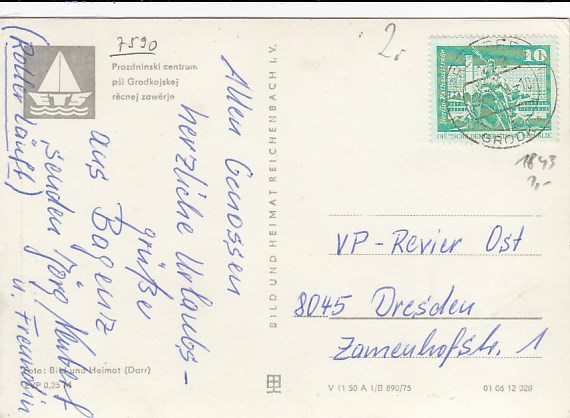 7590
2,-
Prozdninski centrum
pśi Grodkojskej
rěcnej zawěrje
ETS
Allen Genossen
herzliche Urlaubs-
grüße
aus Bagenz
senden Jörg
u. Freundin
(Roller läuft)
Foto: Bild und Heimat (Darr)
EVP 0,25 M
BILD UND HEIMAT REICHENBACH I. V.
10
Berlin-Rathausstraße
DEUTSCHE DEMOKRATISCHE REPUBLIK
GRODK
1843
VP-Revier Ost
8045 Dresden
Zamenhofstr. 1
V 11 50 A I/B 890/75
01 06 12 028